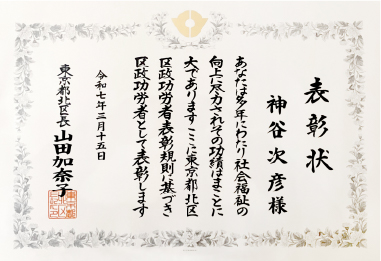 表彰状
神谷次彦様
あなたは多年にわたり社会福祉の
向上に尽力されその功績はまことに
大であります ここに東京都北区
区政功労者表彰規則に基づき
区政功労者として表彰します
令和七年三月十五日
東京都北区長 山田加奈子